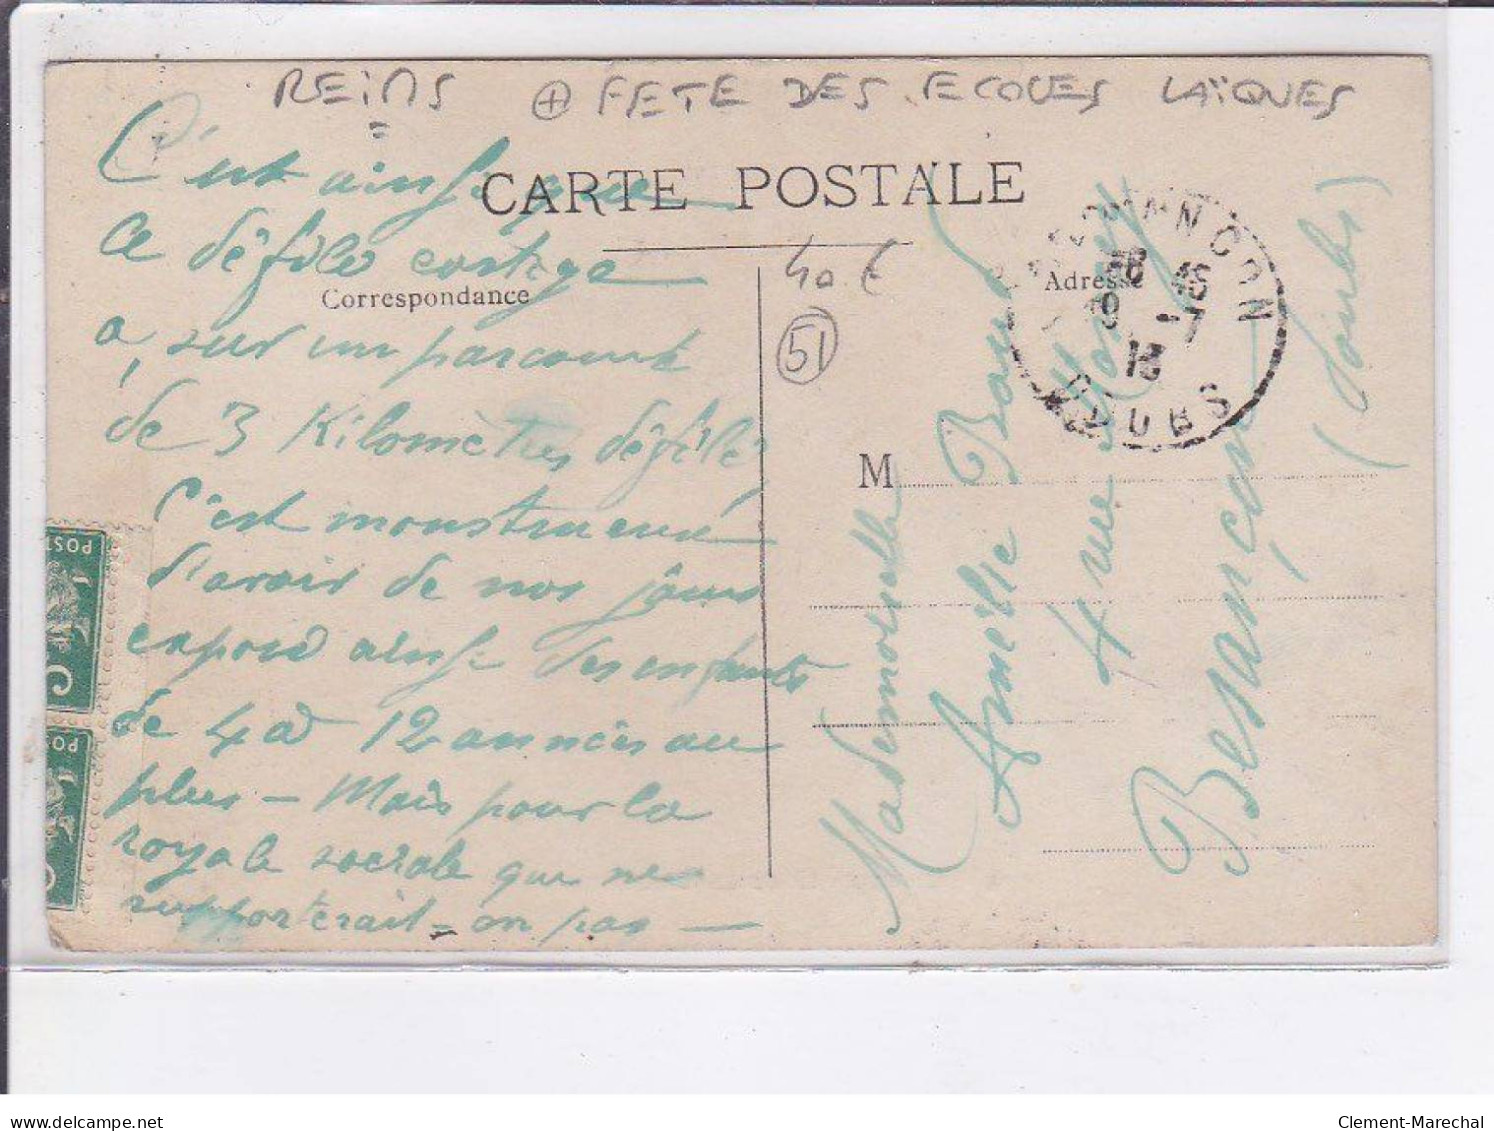 REIMS ⊕ FETE DES ECOLES LAÏQUES
CARTE POSTALE
Correspondance
Adresse
C'est ainsi que
ce défilé cortège
a, sur un parcourt
de 3 Kilomètres défilé,
C'est monstrueux
d'avoir de nos jours
exposé ainsi des enfants
de 4 à 12 années au
plus — Mais pour la
royale sociale que ne
supporterait-on pas —
40 €
51
M
Mademoiselle
Amélie Baud
4 rue
Besançon
(Doubs)
18 45
9 -7
13
DOUBS
POST
C
POST
C
www.delcampe.net
Clement-Marechal